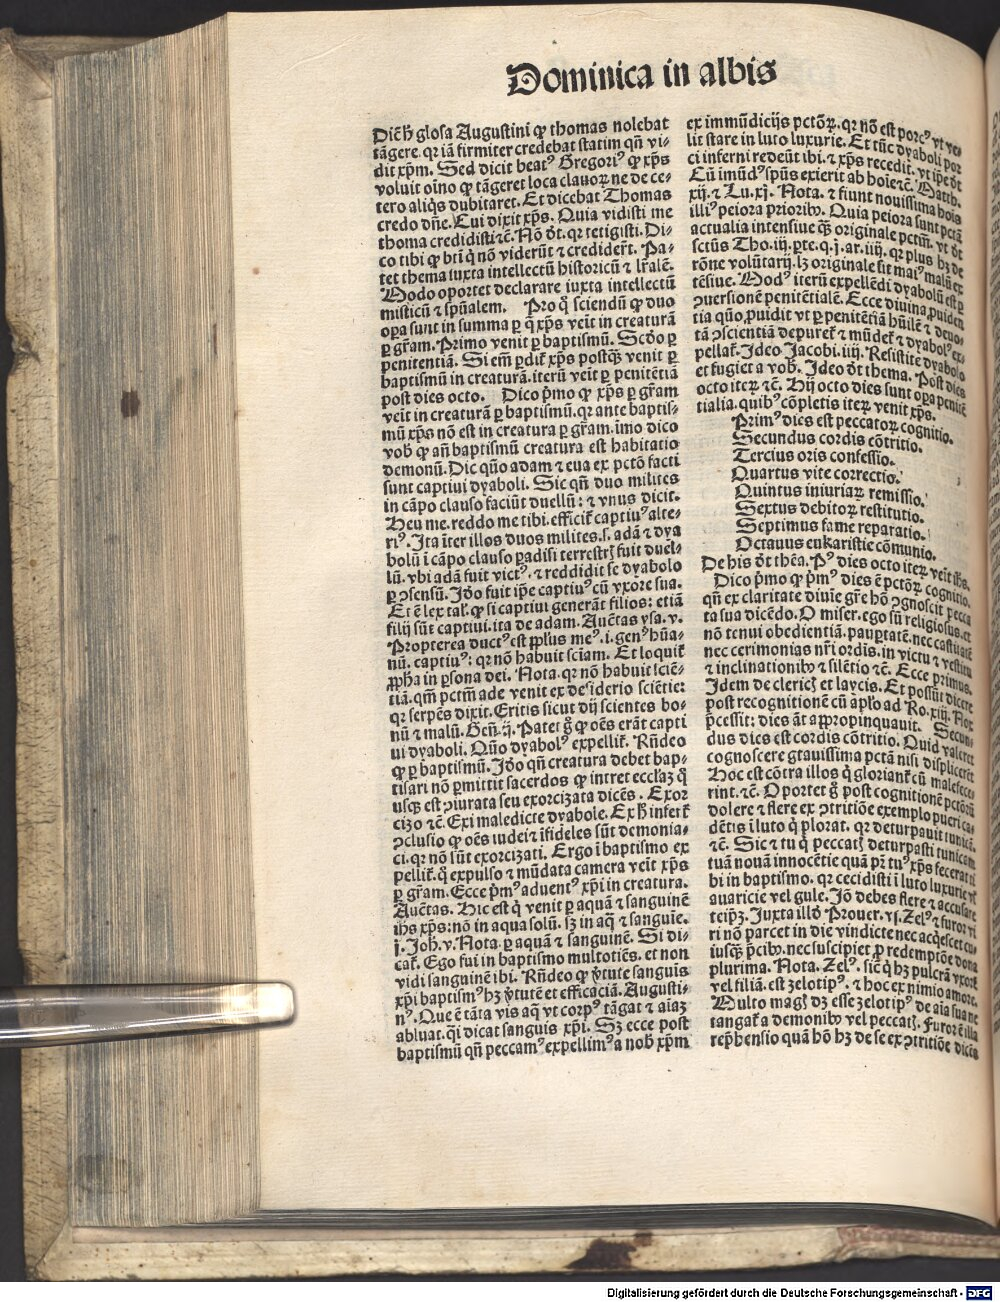 Dominica in albis
Dic̄ h̄ glosa Augustini ꝙ thomas nolebat
tāgere. qr iā firmiter credebat statim qn̄ vi-
dit xp̄m. Sed dicit beatꝰ Gregoriꝰ ꝙ xp̄s
voluit oīno ꝙ tāgeret loca clauoꝝ ne de ce-
tero aliq̄s dubitaret. Et dicebat Thomas
credo dn̄e. Cui dixit xp̄s. Quia vidisti me
thoma credidisti ⁊c̄. Nō d̄t. qr tetigisti. Di-
co tibi ꝙ bt̄i q̇ nō viderūt ⁊ crediderūt. Pa-
tet thema iuxta intellectū historicū ⁊ lr̄alē.
Modo oportet declarare iuxta intellectū
misticū ⁊ spūalem. Pro q̊ sciendū ꝙ duo
oꝑa sunt in summa ꝑ q̄ xp̄s veīt in creaturā
ꝑ gr̄am. Primo venit ꝑ baptismū. Scd̄o ꝑ
penitentiā. Si em̄ ꝑdit̄ xp̄s postq̄ȝ venit ꝑ
baptismū in creaturā. iterū veīt ꝑ penitētiā
post dies octo. Dico p̄mo ꝙ xp̄s ꝑ gr̄am
veīt in creaturā ꝑ baptismū. qr ante baptis-
mū xp̄s nō est in creatura ꝑ gr̄am. īmo dico
vob̄ ꝙ an̄ baptismū creatura est habitatio
demonū. Dic qūo adam ⁊ eua ex pctō facti
sunt captiui dyaboli. Sic qn̄ duo milites
in cāpo clauso faciūt duellū: ⁊ vnus dicit.
Heu me. reddo me tibi. efficit̄ captiuꝰ alte-
riꝰ. Ita īter illos duos milites. s. adā ⁊ dya
bolū ī cāpo clauso ꝑadisi terrestrꝭ fuit duel-
lū. vbi adā fuit victꝰ. ⁊ reddidit se dyabolo
ꝑ ꝯsensū. Iđo fuit ip̄e captiuꝰ cū vxore sua.
Et ē lex tal̄. ꝙ si captiui generāt filios: etiā
filij sūt captiui. ita de adam. Auc̄tas ysa. v.
Propterea ductꝰ est pp̄lus meꝰ. i. genꝰ hūa-
nū. captiuꝰ: qr nō habuit sciam. Et loquit̄
ꝓph̄a in ꝑsona dei. Nota. qr nō habuit sciē-
tiā. qm̄ pctm̄ ade venit ex desiderio sciētie:
qr serpēs dixit. Eritis sicut dij scientes bo-
nū ⁊ malū. Gen̄. ij. Patet g̊ ꝙ oēs erāt capti
ui dyaboli. Qūo dyabolꝰ expellit̄. Rn̄deo
ꝙ ꝑ baptismū. Iđo qn̄ creatura debet bap-
tisari nō ꝑmittit sacerdos ꝙ intret ecclaȝ q̊
usqȝ est ꝯiurata seu exorcizata dicēs. Exor
cizo ⁊c̄. Exi maledicte dyabole. Ex h̄ infert̄
ꝯclusio ꝙ oēs iudei ⁊ īfideles sūt demonia-
ci. qr nō sūt exorcizati. Ergo ī baptismo ex
pellit̄. q̇ expulso ⁊ mūdata camera veīt xp̄s
ꝑ gr̄am. Ecce p̄mꝰ aduentꝰ xp̄i in creatura.
Auc̄tas. Hic est q̇ venit ꝑ aquā ⁊ sanguinē
ih̄s xp̄s: nō in aqua solū. sȝ in aq̄ ⁊ sanguīe.
j. Joh̄. v. Nota. ꝑ aquā ⁊ sanguinē. Si di-
cat̄. Ego fui in baptismo multotiēs. et non
vidi sanguinē ibi. Rn̄deo ꝙ v̄tute sanguis
xp̄i baptismꝰ hȝ v̄tutē et efficaciā. Augusti-
nꝰ. Que ē tāta vis aq̄ vt corpꝰ tāgat ⁊ aiaȝ
abluat. q̇i dicat sanguis xp̄i. Sȝ ecce post
baptismū qn̄ peccamꝰ expellimꝰ a nob̄ xp̄m
ex immūdicijs pctōꝝ. qr nō est porcꝰ vt ve-
lit stare in luto luxurie. Et tūc dyaboli por
ci inferni redeūt ibi. ⁊ xp̄s recedit. vt ip̄e d̄t
Cū imūdꝰ spūs exierit ab hoīe ⁊c̄. Matth.
xij. ⁊ Lu. xj. Nota. ⁊ fiunt nouissima hoīs
illiꝰ peiora prioribꝰ. Quia peiora sunt pctā
actualia intensiue q̄ȝ originale pctm̄. vt d̄t
sctūs Tho. iij. ꝑte. q. j. ar. iiij. qr plus hȝ de
rōne volūtarij. lȝ originale sit maiꝰ malū ex
tēsiue. Modꝰ iterū expellēdi dyabolū est ꝑ
ꝯuersionē penitētialē. Ecce diuina ꝓuidēn
tia qūo ꝓuidit vt ꝑ penitētiā hūilē ⁊ deuo-
tā ꝯscientiā depuret̄ ⁊ mūdet̄ ⁊ dyabolꝰ ex-
pellat̄. Ideo Jacobi. iiij. Resistite dyabolo
et fugiet a vob̄. Ideo d̄t thema. Post dies
octo iteꝝ ⁊c̄. Hij octo dies sunt oꝑa penitē
tialia. quibꝰ cōpletis iteꝝ venit xp̄s.
Primꝰ dies est peccatoꝝ cognitio.
Secundus cordis cōtritio.
Tercius oris confessio.
Quartus vite correctio.
Quintus iniuriaꝝ remissio.
Sextus debitoꝝ restitutio.
Septimus fame reparatio.
Octauus eukaristie cōmunio.
De his d̄t thēa. Pꝰ dies octo iteꝝ veīt ih̄s.
Dico p̄mo ꝙ p̄mꝰ dies ē pctōꝝ cognitio.
qn̄ ex claritate diuīe gr̄e hō ꝯgnoscit pecca
ta sua dicēdo. O miser. ego sū religiosus. et
nō tenui obedientiā. pauꝑtatē. nec castitatē
nec cerimonias nr̄i ordis. in victu ⁊ vestitu
⁊ inclinationibꝰ ⁊ silētio ⁊c̄. Ecce primus.
Idem de clericꝭ et laycis. Et possūt dicere
post recognitionē cū apl̄o ad Ro. xiij. Nox
p̄cessit: dies āt appropinquauit. Secun-
dus dies est cordis cōtritio. Quid valeret
cognoscere grauissima pctā nisi displiceret
Hoc est cōtra illos q̇ gloriant̄ cū malefece-
rint. ⁊c̄. Oportet g̊ post cognitionē pctōrū
dolere ⁊ flere ex ꝯtritiōe exemplo pueri ca-
dētis ī luto q̇ plorat. qr deturpauit tunicā.
⁊c̄. Sic ⁊ tu q̇ peccatꝭ deturpasti tunicam
tuā nouā innocētie quā pr̄ tuꝰ xp̄s fecerat ti
bi in baptismo. qr cecidisti ī luto luxurie vt̄
auaricie vel gule. Jō debes flere ⁊ accusare
teipȝ. Iuxta illđ Prouer. vj. Zelꝰ ⁊ furor vi
ri nō parcet in die vindicte nec acq̇escet cu-
iusqȝ p̄cibꝰ. nec suscipiet ꝓ redemptōe dona
plurima. Nota. Zelꝰ. sic̄ q̇ hȝ pulcrā vxorē
vel filiā. est zelotipꝰ. ⁊ hoc ex nimio amore.
Multo magꝭ dȝ esse zelotipꝰ de aīa sua ne
tangat̄ a demonibꝰ vel peccatꝭ. Furor ē illa
rep̄hensio quā hō hȝ de se ex ꝯtritiōe dicēs
Digitalisierung gefördert durch die Deutsche Forschungsgemeinschaft - DFG